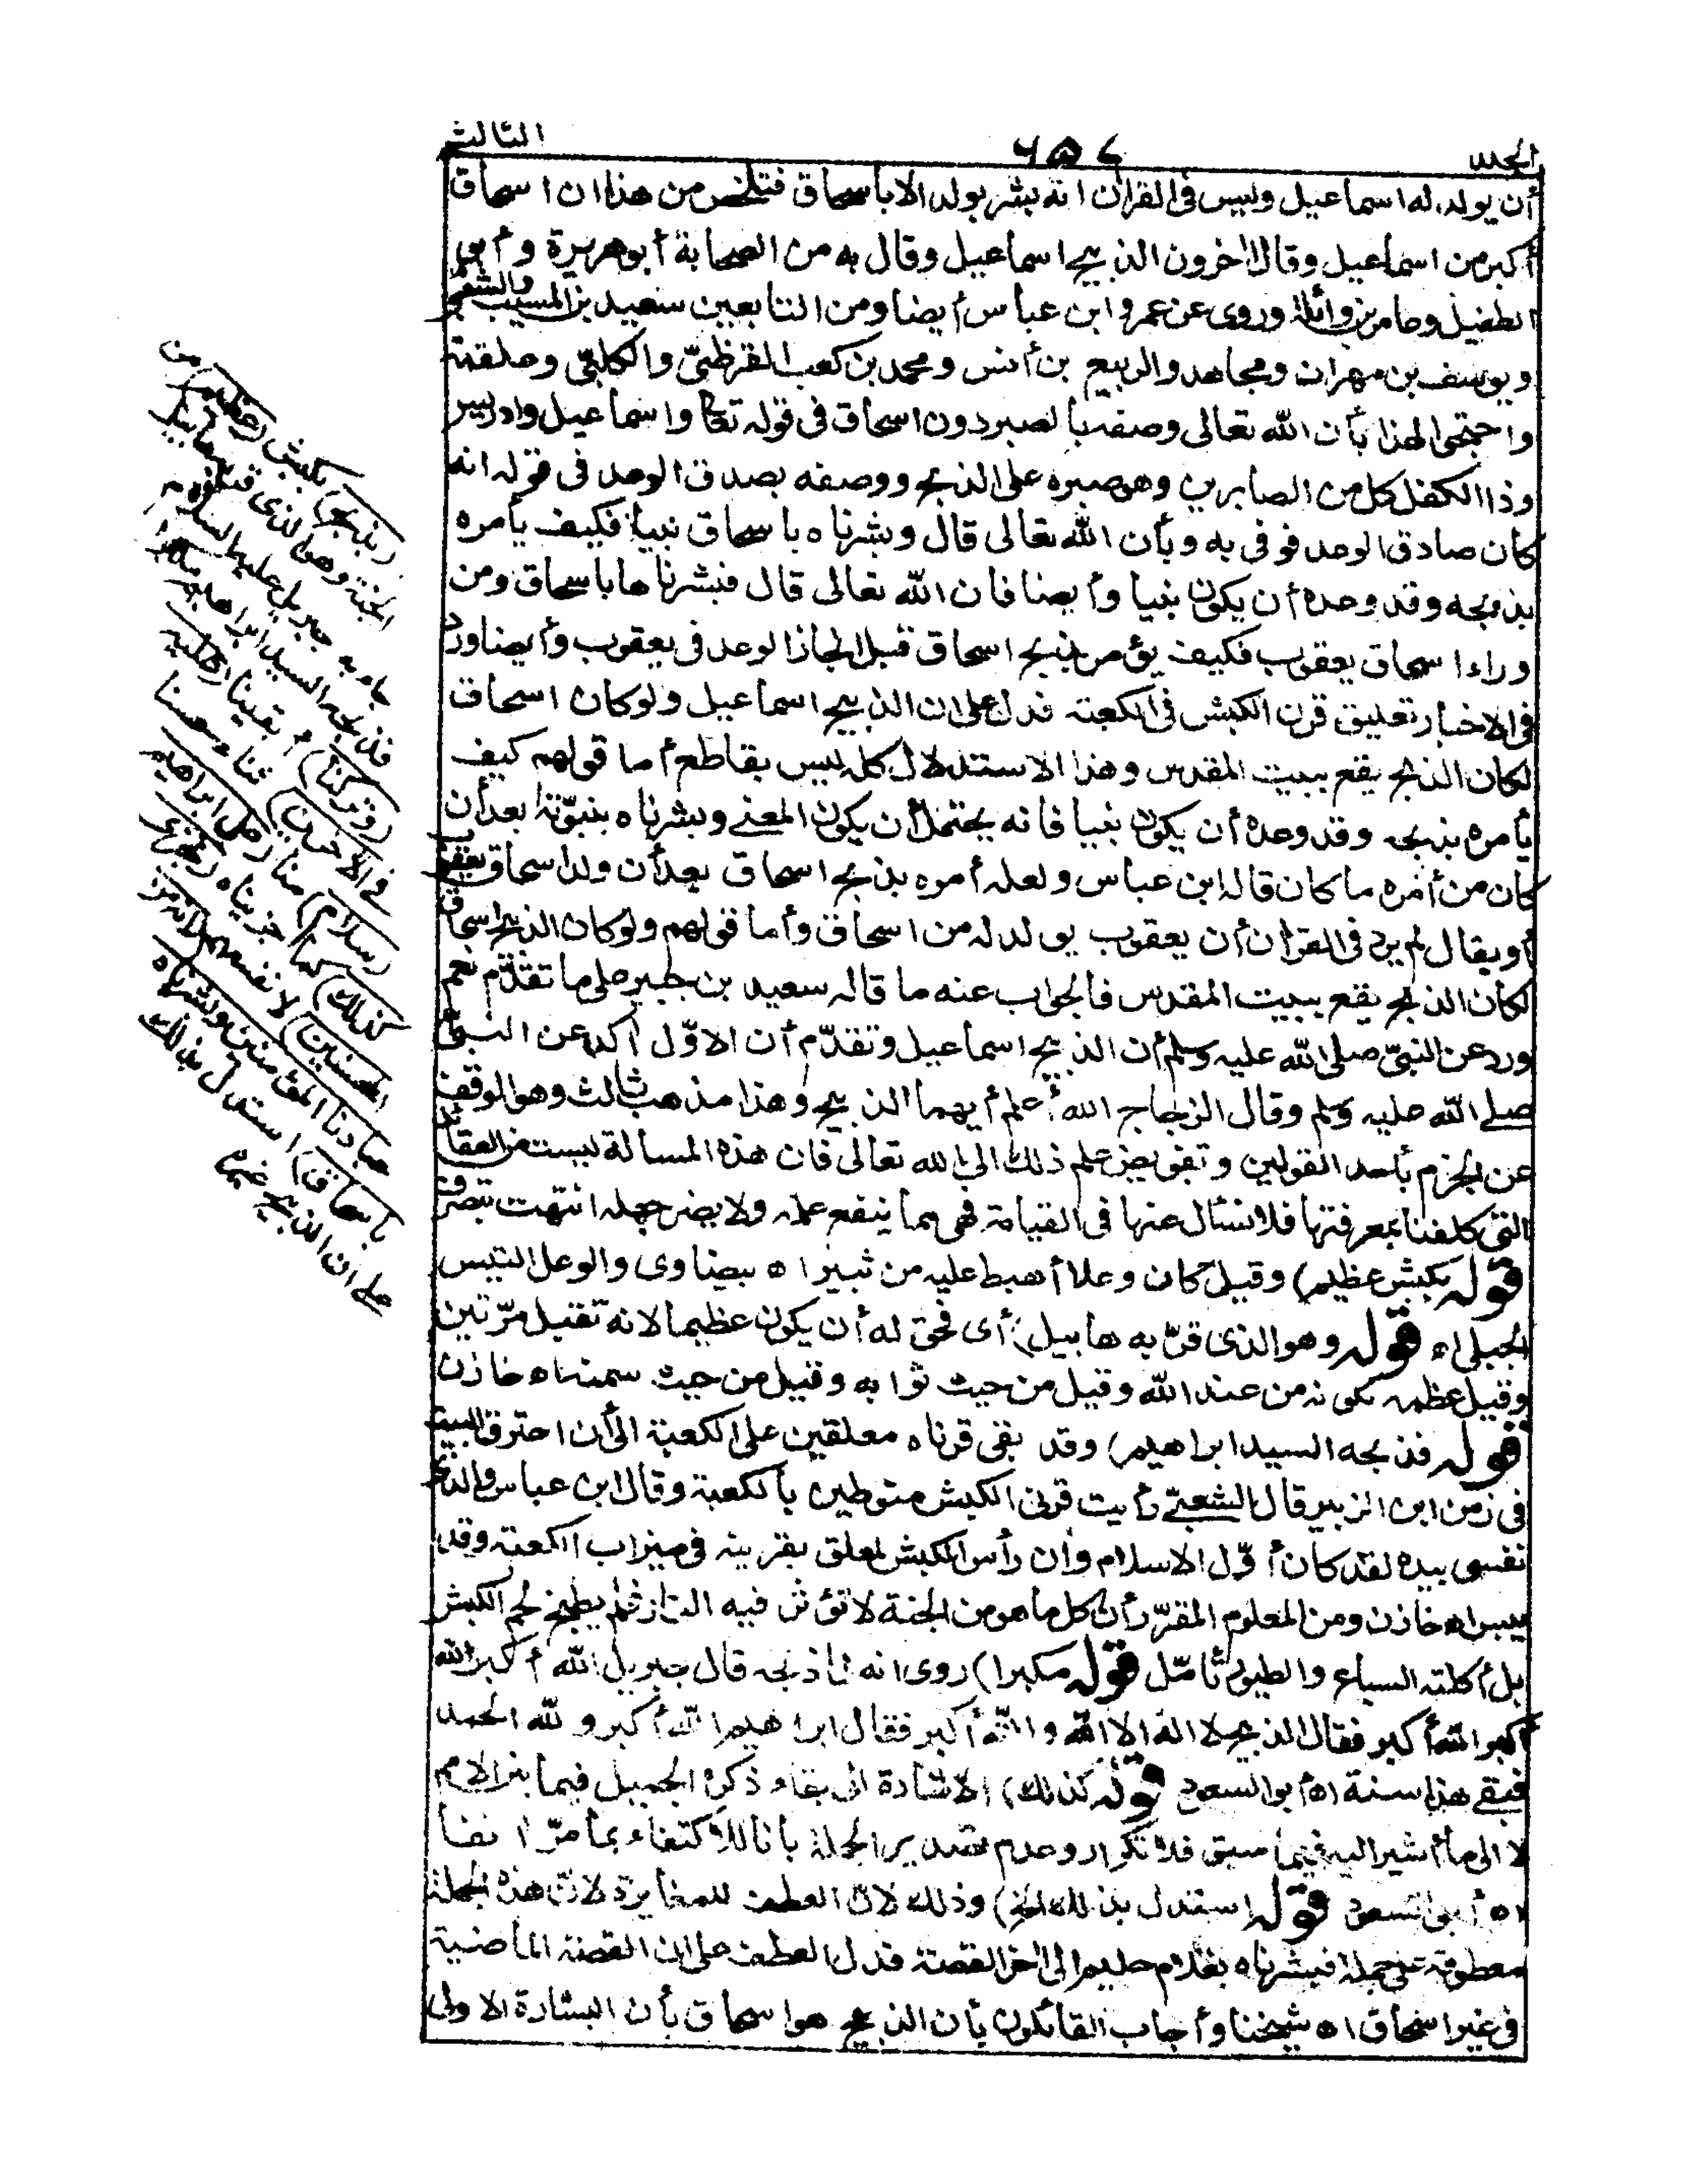 الجلد
٦٥٧
الثالث
أن يولد له اسماعيل وليس فى القرآن انه بشر بولد الا باسحاق فتلخص من هذا ان اسحاق
أكبر من اسماعيل وقال اٰخرون الذبيح اسماعيل وقال به من الصحابة أبو هريرة وأبو
الطفيل وعامر بن واثلة وروى عن عمر وابن عباس أيضا ومن التابعين سعيد بن المسيب والشعبى
ويوسف بن مهران ومجاهد والربيع بن أنس ومحمد بن كعب القرظىّ والكلبىّ وعلقمة
واحتجوا لهذا بأن الله تعالى وصفه بالصبر دون اسحاق فى قوله تعالى واسماعيل وادريس
وذا الكفل كل من الصابرين وهو صبره على الذبح ووصفه بصدق الوعد فى قوله انه
كان صادق الوعد فوفى به وبأن الله تعالى قال وبشرناه باسحاق نبيا فكيف يأمره
بذبحه وقد وعده أن يكون نبيا وأيضا فان الله تعالى قال فبشرناها باسحاق ومن
وراء اسحاق يعقوب فكيف يؤمر بذبح اسحاق قبل انجاز الوعد فى يعقوب وأيضا ورد
فى الاخبار تعليق قرن الكبش فى الكعبة فدل على ان الذبيح اسماعيل ولو كان اسحاق
لكان الذبح يقع ببيت المقدس وهذا الاستدلال كله ليس بقاطع أما قولهم كيف
يأمره بذبحه وقد وعده أن يكون نبيا فانه يحتمل أن يكون المعنى وبشرناه بنبوّته بعد أن
كان من أمره ما كان قاله ابن عباس ولعله أمره بذبح اسحاق بعد أن ولد اسحاق يعقوب
أو يقال لم يرد فى القرآن أن يعقوب يولد له من اسحاق وأما قولهم ولو كان الذبيح اسحاق
لكان الذبح يقع ببيت المقدس فالجواب عنه ما قاله سعيد بن جبير على ما تقدّم نعم
ورد عن النبىّ صلى الله عليه وسلم أن الذبيح اسماعيل وتقدّم أن الاوّل أكد عن النبىّ
صلى الله عليه وسلم وقال الزجاج الله أعلم أيهما الذبيح وهذا مذهب ثالث وهو الوقف
عن الجزم بأحد القولين وتفويض علم ذلك الى الله تعالى فان هذه المسألة ليست من العقائد
التى كلفنا بمعرفتها فلا نسأل عنها فى القيامة فهى مما ينفع علمه ولا يضر جهله انتهت بتصرف
قوله بكبش عظيم) وقيل كان وعلا أهبط عليه من ثبير اه بيضاوى والوعل التيس
الجبلى اه قوله وهو الذى قرّبه هابيل) أى فحق له أن يكون عظيما لانه تقبل مرّتين
وقيل عظمه بكونه من عند الله وقيل من حيث ثوابه وقيل من حيث سمنه اه خازن
قوله فذبحه السيد ابراهيم) وقد بقى قرناه معلقين على الكعبة الى أن احترق البيت
فى زمن ابن الزبير قال الشعبىّ رأيت قرنى الكبش منوطين بالكعبة وقال ابن عباس والذى
نفسى بيده لقد كان أوّل الاسلام وان رأس الكبش لمعلق بقرنيه فى ميزاب الكعبة وقد
يبس اه خازن ومن المعلوم المقرّر أن كل ما هو من الجنة لا تؤثر فيه النار فلم يطبخ لحم الكبش
بل أكلته السباع والطيور تأمّل قوله مكبرا) روى انه لما ذبحه قال جبريل الله أكبر الله
أكبر الله أكبر فقال الذبيح لا اله الا الله والله أكبر فقال ابراهيم الله أكبر ولله الحمد
فبقى هذا سنة اه أبو السعود قوله كذلك) الاشارة الى بقاء ذكره الجميل فيما بين الامم
لا الى ما أشير اليه فيما سبق فلا تكرار وعدم تصدير الجملة بانا للاكتفاء بما مرّ اٰنفا
اه أبو السعود قوله استدل بذلك الخ) وذلك لان العطف للمغايرة لان هذه الجملة
معطوفة على جملة فبشرناه بغلام حليم الى اٰخر القصة فدل العطف على ان القصة الماضية
فى غير اسحاق اه شيخنا وأجاب القائلون بأن الذبيح هو اسحاق بأن البشارة الاولى
(بذبح) بكبش (عظيم) من
الجنة وهو الذى قربه هابيل
جاء به جبريل عليه السلام
فذبحه السيد ابراهيم مكبرا
(وتركنا) أبقينا (عليه
فى الاٰخرين) ثناء حسنا
(سلام) منا (على ابراهيم
كذلك) كما جزيناه (نجزى
المحسنين) لانفسهم (انه من
عبادنا المؤمنين وبشرناه
باسحاق) استدل بذلك
على ان الذبيح غيره